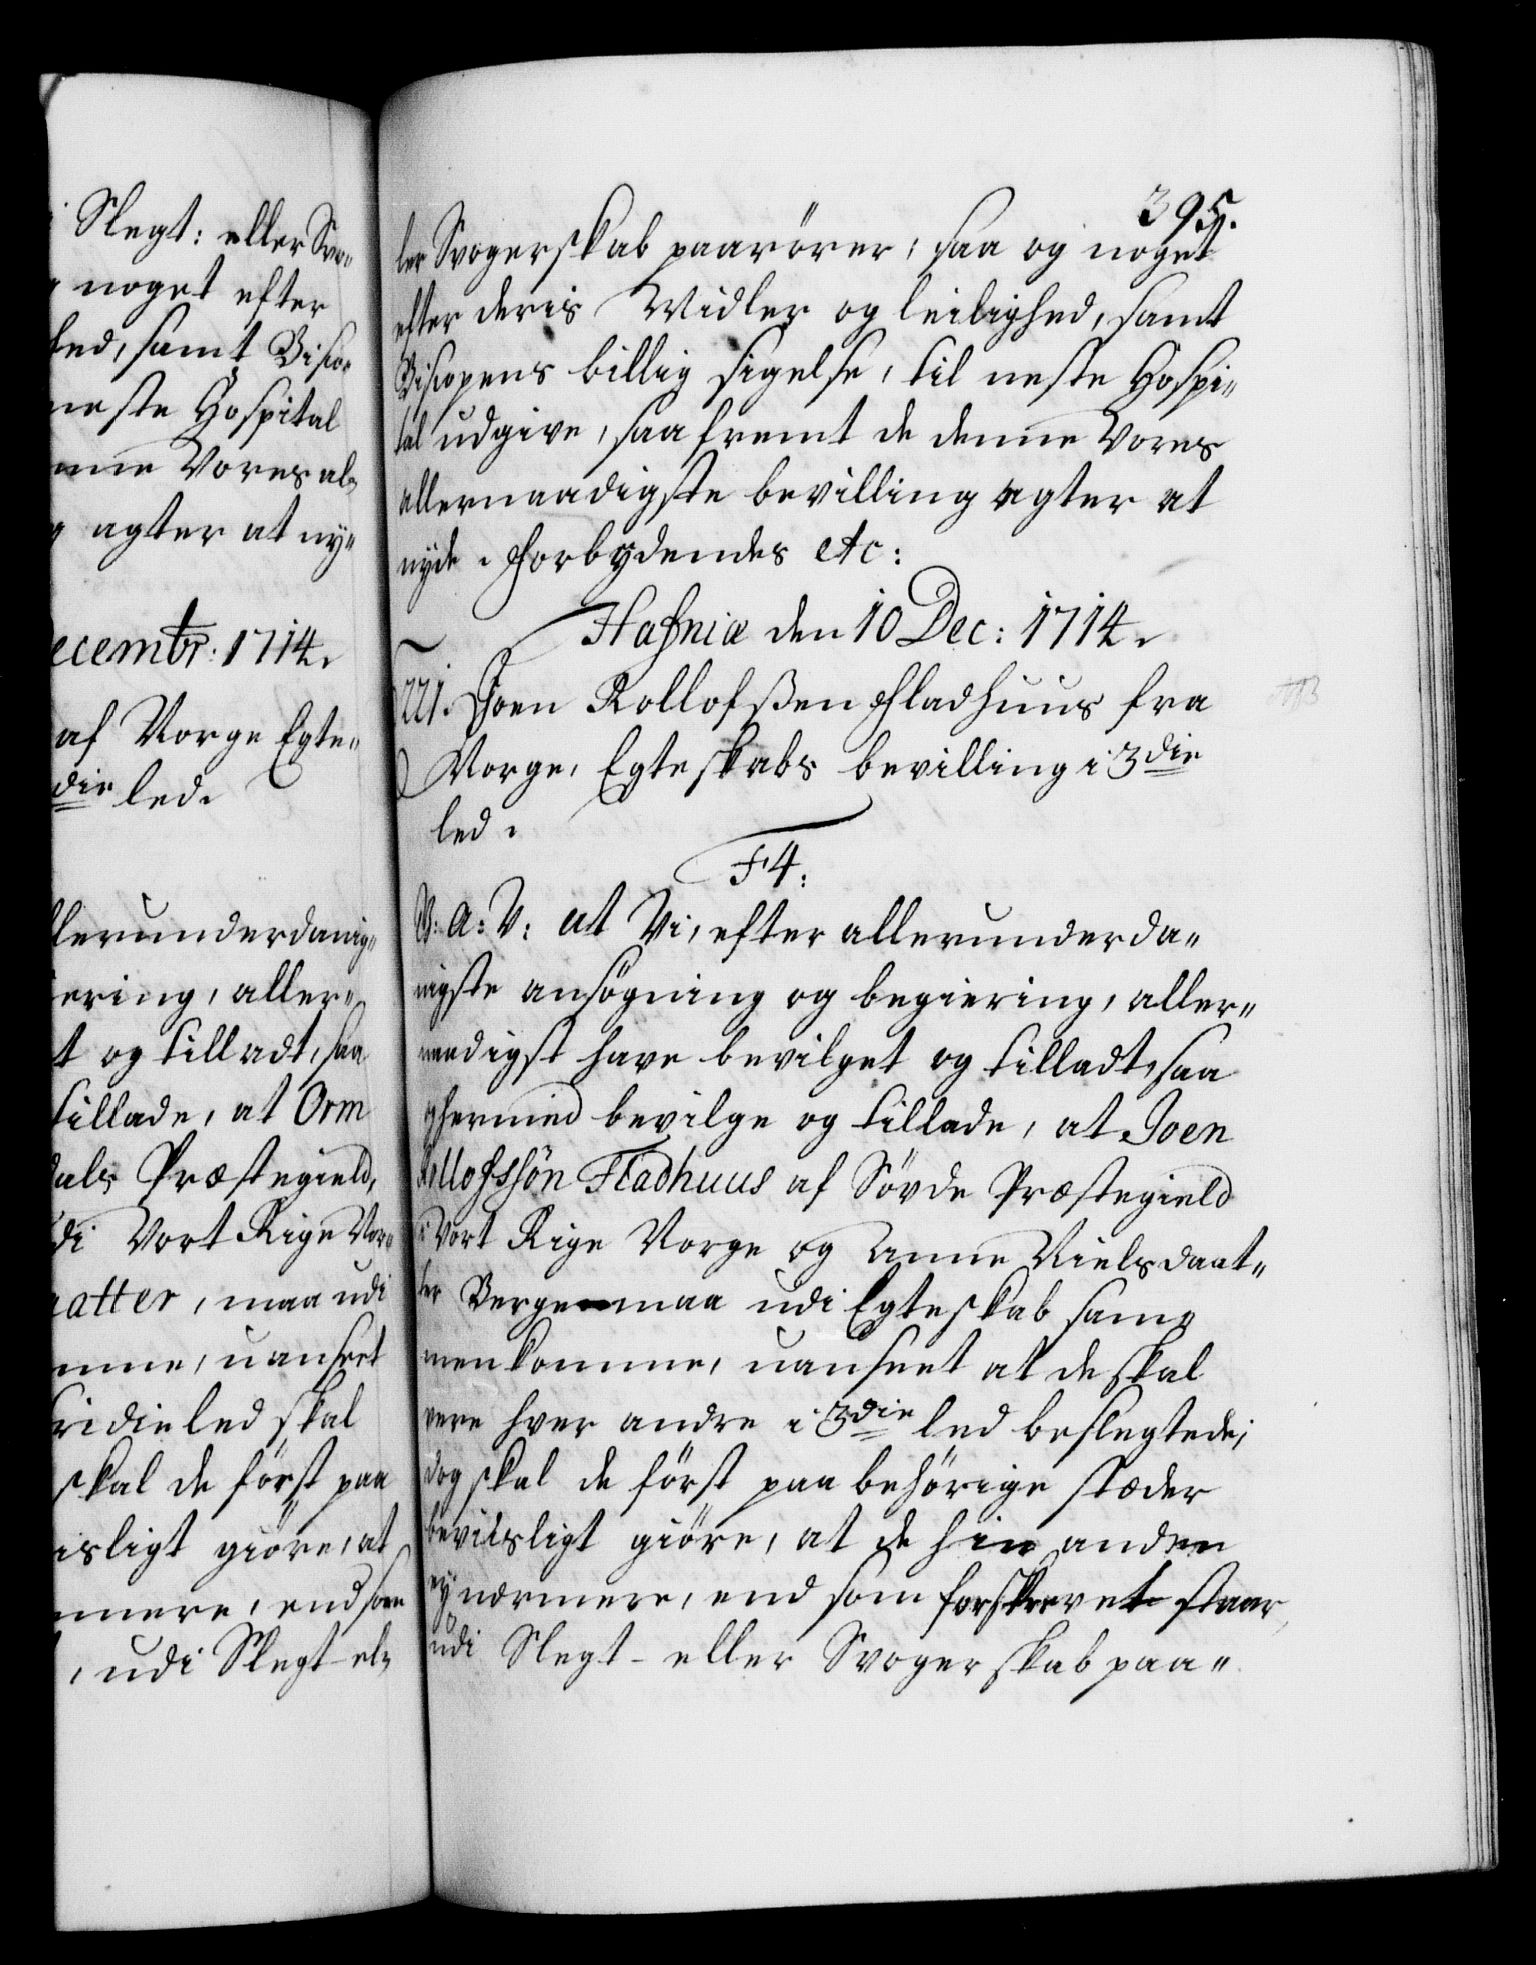 Slegt: eller Svo-
noget efter
hed, samt Bisco-
neste Hospital
enne Vores al-
agter at ny-
ecembr: 1714.
af Norge Egte-
die led.
llerunderdanig-
iering, aller-
t og tilladt, saa
tillade, at Orm
dals Præstegield,
di Vort Rige Nor-
aatter, maa udi
mme, uanseet
ridie led skal
skal de först paa
isligt giöre, at
rmere, end som
, udi Slegt- el-
395.
ler Svogerskab paarörer, saa og noget
efter deris Midler og leilighed, samt
Biscopens billig sigelse, til neste Hospi-
tal udgive, saafremt de denne Vores
allernaadigste bevilling agter at
nyde. Forbydendes etc:
Hafniæ den 10 Dec: 1714.
221. Joen Rollofßen Fladhuus fra
Norge, Egteskabs bevilling i 3die
led.
F4:
V: A: V: at Vi, efter allerunderda-
nigste ansögning og begiering, aller-
naadigst have bevilget og tilladt, saa
og hermed bevilge og tillade, at Joen
Rollofssön Fladhuus af Sövde Præstegield
i Vort Rige Norge og Anne Nielsdaat-
ter Berge maa udi Egteskab sam-
menkomme, uanseet at de skal
være hver andre i 3die led beslegtede;
dog skal de först paa behörige stæder
bevisligt giöre, at de hin anden
ey nærmere, end som forskrevet staar,
udi Slegt- eller Svogerskab paa-